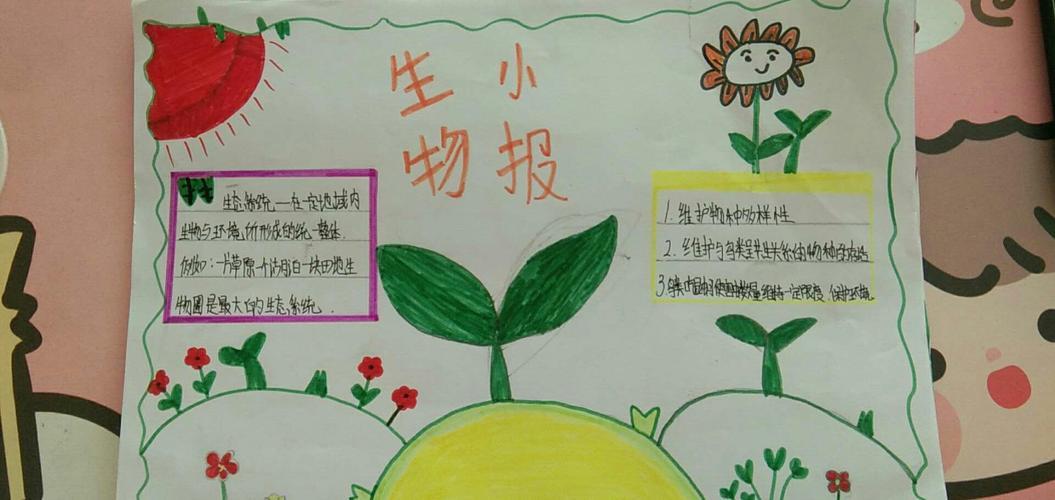 生物
小报
生态系统——在一定地域内
生物与环境所形成的统一整体.
例如：一片草原一个湖泊一块田地生
物圈是最大的生态系统.
1.维护物种多样性
2.维护与各类呈共生关系的物种的存活
3.数量维持一定限度,保护环境